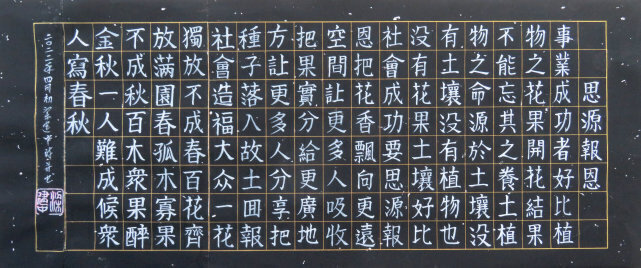 思源報恩
事業成功者好比植
物之花果開花結果
不能忘其之養土植
物之命源於土壤没
有土壤没有植物也
没有花果土壤好比
社會成功要思源報
恩把花香飄向更遠
空間讓更多人吸收
把果實分給更廣地
方讓更多人分享把
種子落入故土囬報
社會造福大众一花
獨放不成春百花齊
放滿園春孤木寡果
不成秋百木衆果醉
金秋一人難成候衆
人寫春秋
二〇二二年四月初